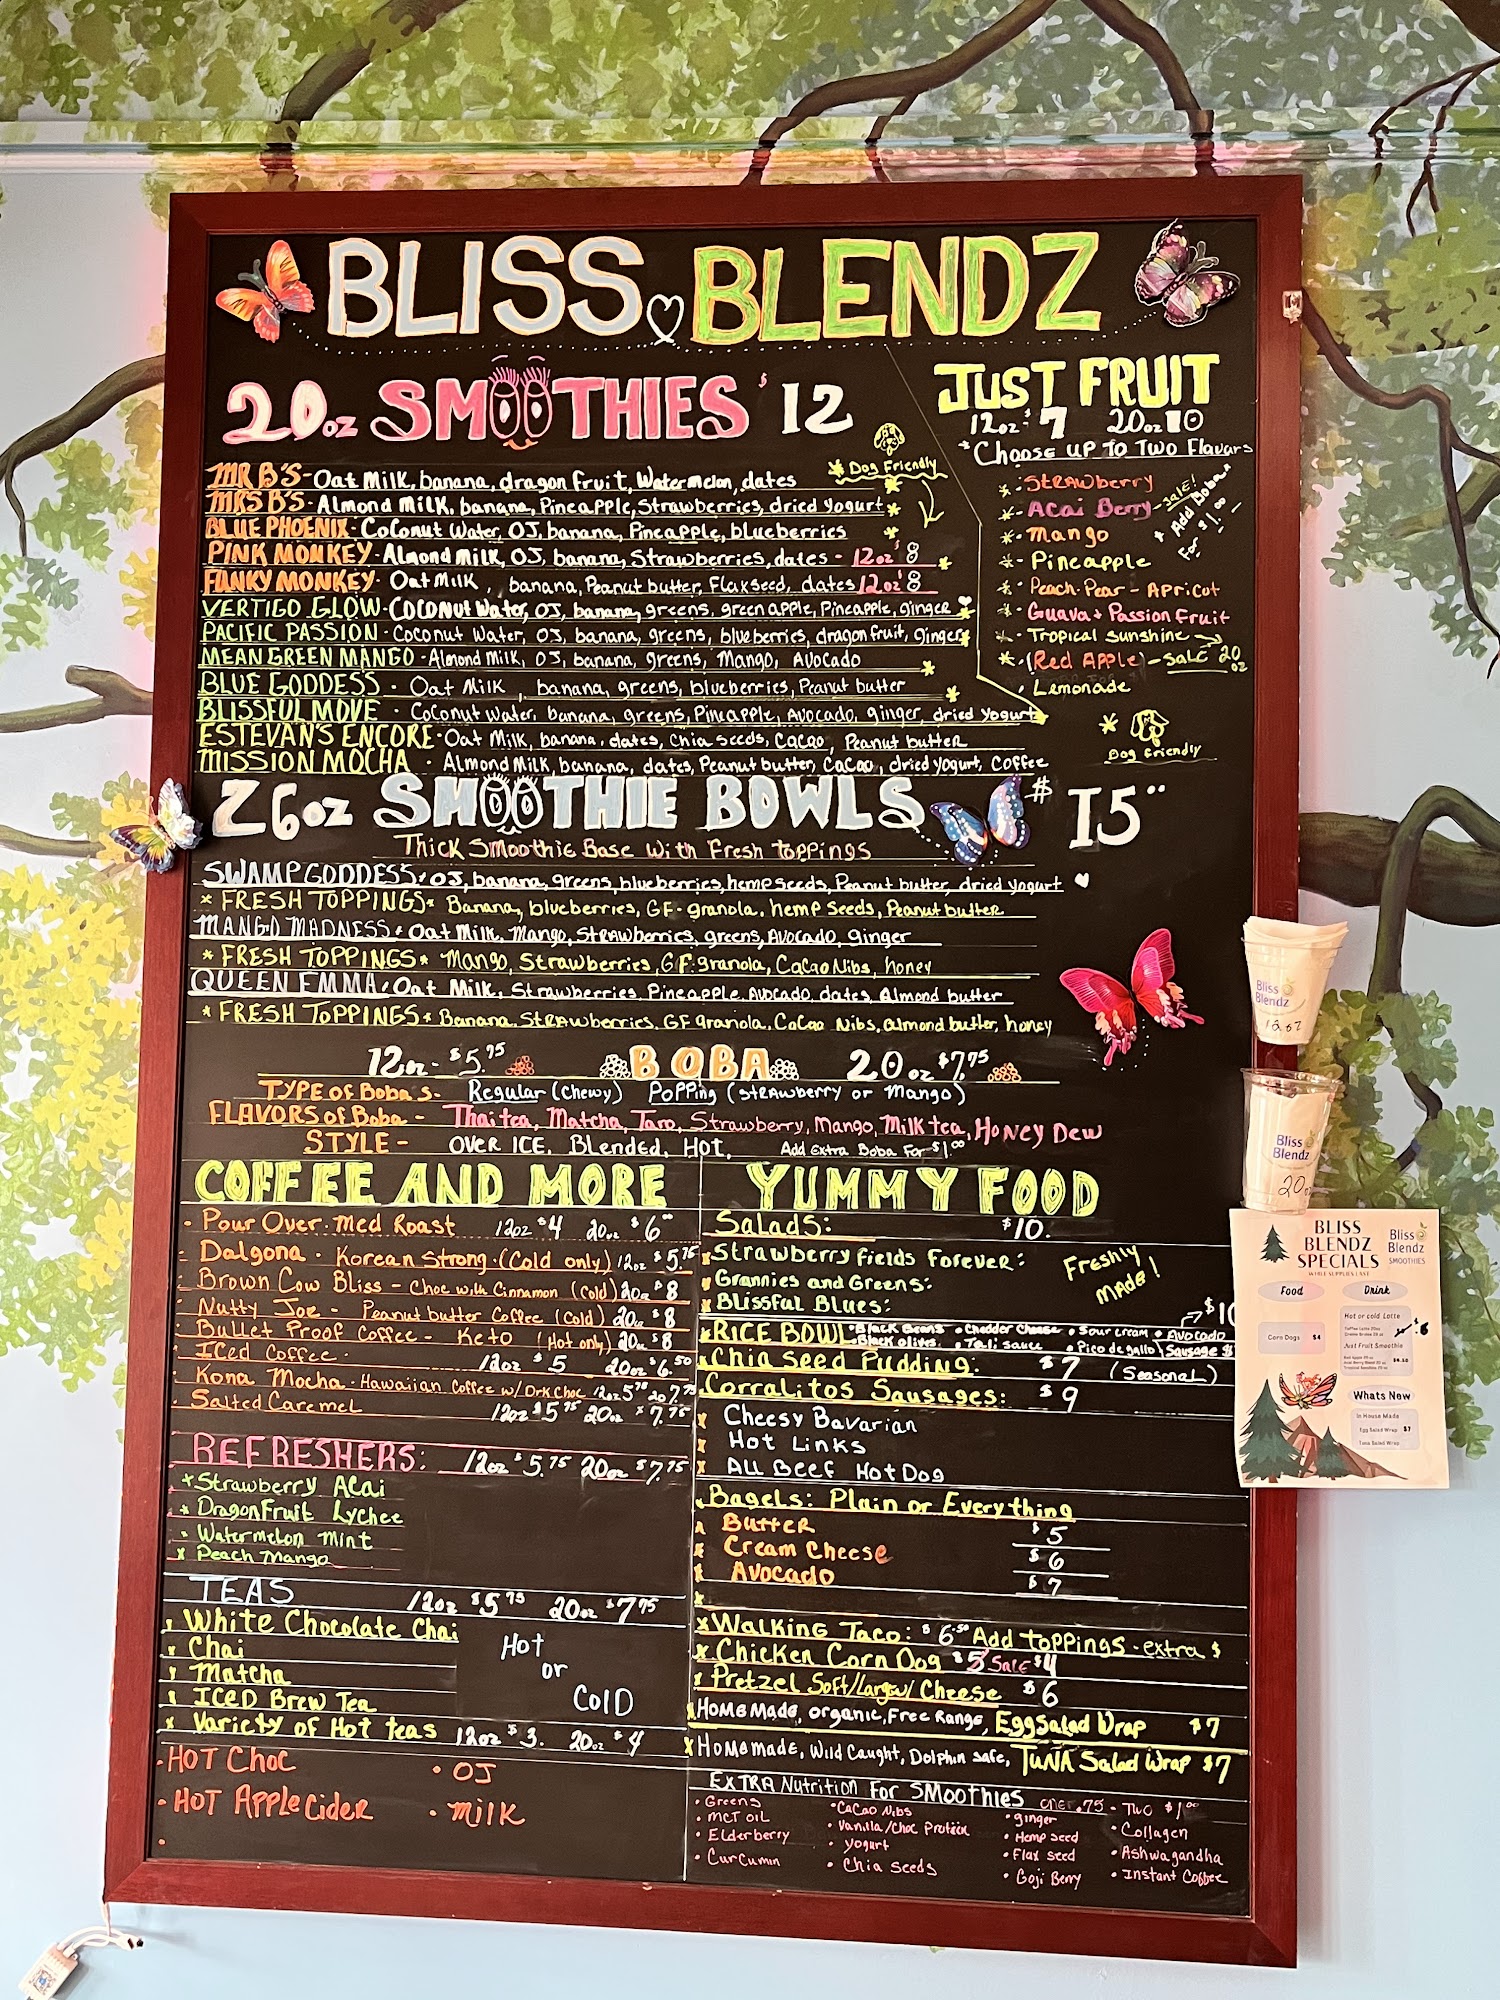 BLISS BLENDZ
20oz SMOOTHIES $12
* Dog Friendly
MR B'S - Oat Milk, banana, dragon fruit, Watermelon, dates
MRS B'S - Almond Milk, banana, Pineapple, Strawberries, dried yogurt *
BLUE PHOENIX - Coconut Water, OJ, banana, Pineapple, blueberries *
PINK MONKEY - Almond Milk, OJ, banana, Strawberries, dates - 12oz $8 *
FUNKY MONKEY - Oat Milk, banana, Peanut butter, Flaxseed, dates 12oz $8
VERTIGO GLOW - Coconut Water, OJ, banana, greens, green apple, Pineapple, ginger *
PACIFIC PASSION - Coconut Water, OJ, banana, greens, blueberries, dragon fruit, ginger *
MEAN GREEN MANGO - Almond Milk, OJ, banana, greens, Mango, Avocado *
BLUE GODDESS - Oat Milk, banana, greens, blueberries, Peanut butter *
BLISSFUL MOVE - Coconut Water, banana, greens, Pineapple, Avocado, ginger, dried yogurt *
ESTEVAN'S ENCORE - Oat Milk, banana, dates, Chia seeds, Cacao, Peanut butter
MISSION MOCHA - Almond Milk, banana, dates, Peanut butter, Cacao, dried yogurt, Coffee
JUST FRUIT
12oz $7 20oz 10
* Choose up to Two Flavors
* Strawberry
* Acai Berry - SALE!
* Add Boba
For $1.00
* Mango
* Pineapple
* Peach-Pear-Apricot
* Guava + Passion Fruit
* Tropical Sunshine →
* (Red Apple) - sale 20oz
Lemonade
* Dog Friendly
26oz SMOOTHIE BOWLS $15
Thick Smoothie Base With Fresh Toppings
SWAMP GODDESS: OJ, banana, greens, blueberries, hemp seeds, Peanut butter, dried yogurt
* FRESH TOPPINGS * Banana, blueberries, GF-granola, hemp seeds, Peanut butter
MANGO MADNESS: Oat Milk, Mango, Strawberries, greens, Avocado, ginger
* FRESH TOPPINGS * Mango, Strawberries, GF-granola, CaCao Nibs, honey
QUEEN EMMA: Oat Milk, Strawberries, Pineapple, Avocado, dates, Almond butter
* FRESH TOPPINGS * Banana, Strawberries, GF granola, CaCao Nibs, almond butter, honey
12oz - $5.75 BOBA 20oz $7.75
TYPE of Boba's - Regular (Chewy) Popping (Strawberry or Mango)
FLAVORS of Boba - Thai tea, Matcha, Taro, Strawberry, Mango, Milk tea, Honey Dew
STYLE - OVER ICE, Blended, HOT, Add Extra Boba For $1.00
COFFEE AND MORE
- Pour Over - Med Roast 12oz $4 20oz $6
Dalgona - Korean Strong - (Cold only) 12oz $5.75
Brown Cow Bliss - Choc with Cinnamon (Cold) 20oz $8
Nutty Joe - Peanut butter Coffee (Cold) 20oz $8
Bullet Proof Coffee - Keto (Hot only) 20oz $8
Iced Coffee 12oz $5 20oz $6.50
Kona Mocha - Hawaiian Coffee w/ Drk Choc 12oz 5.75 20 7.75
Salted Caramel 12oz $5.75 20oz $7.75
REFRESHERS: 12oz $5.75 20oz $7.75
* Strawberry Acai
* DragonFruit Lychee
* Watermelon Mint
* Peach Mango
TEAS 12oz $5.75 20oz $7.75
White Chocolate Chai
Chai
Matcha
Iced Brew Tea
Hot or Cold
Variety of Hot teas 12oz $3. 20oz $4
- HOT Choc
• OJ
- HOT Apple Cider
• Milk
YUMMY FOOD
Salads: $10.
Strawberry Fields Forever:
Grannies and Greens:
Blissful Blues:
Freshly Made!
RICE BOWL • Black Beans • Chedder Cheese • Sour Cream • Avocado
• Black olives • Pico de gallo
Chia Seed Pudding: $7 (Seasonal)
Corralitos Sausages: $9
x Cheesy Bavarian
x Hot Links
x All Beef Hot Dog
Bagels: Plain or Everything
Butter $5
Cream Cheese $6
Avocado $7
Walking Taco: $6.50 Add toppings - extra $
Chicken Corn Dog $5 Sale $4
Pretzel Soft/Large w/ Cheese $6
Homemade, organic, Free Range, Egg Salad Wrap $7
Homemade, Wild Caught, Dolphin safe, TUNA Salad Wrap $7
EXTRA Nutrition For Smoothies one .75 - Two $1.00
• Greens
• MCT OIL
• Elderberry
• Curcumin
• CaCao Nibs
• Vanilla/Choc Protein
• Yogurt
• Chia Seeds
• ginger
• Hemp Seed
• Flax seed
• Goji Berry
• Collagen
• Ashwagandha
• Instant Coffee
Bliss Blendz
Bliss Blendz
20oz
BLISS BLENDZ SPECIALS
WHILE SUPPLIES LAST
Bliss Blendz
SMOOTHIES
Food
Corn Dogs $4
Drink
Hot or cold Latte
Just Fruit Smoothie
Whats New
In House Made
Egg Salad Wrap $7
Tuna Salad Wrap